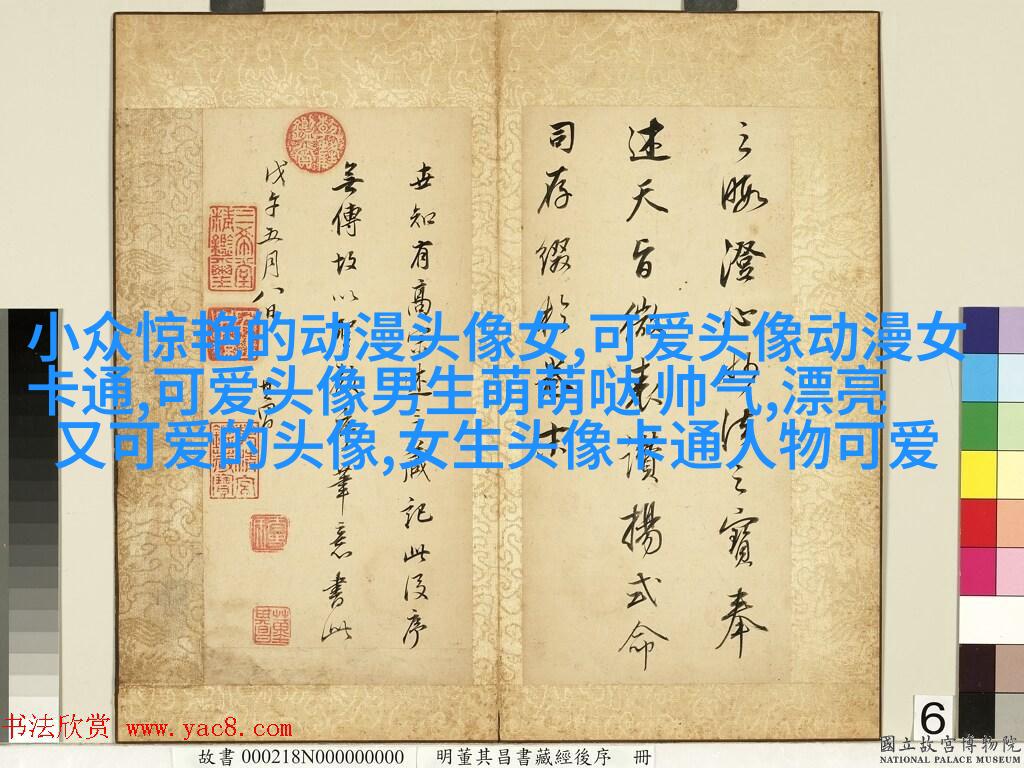 之晦澄心妙法之寶奉
述天旨微表讚揚式命
司存綴於末
世知有高宗述三藏記此後序
無傳故以筆意書此
戊午五月八日
其昌
三希堂精鑑璽
小众惊艳的动漫头像女,可爱头像动漫女
卡通,可爱头像男生萌萌哒 帅气,漂亮
又可爱的头像,女生头像卡通人物可爱
书法欣赏 www.yac8.com
6
故書 000218N000000000 明董其昌書藏經後序 冊
國立故宮博物院
NATIONAL PALACE MUSEUM